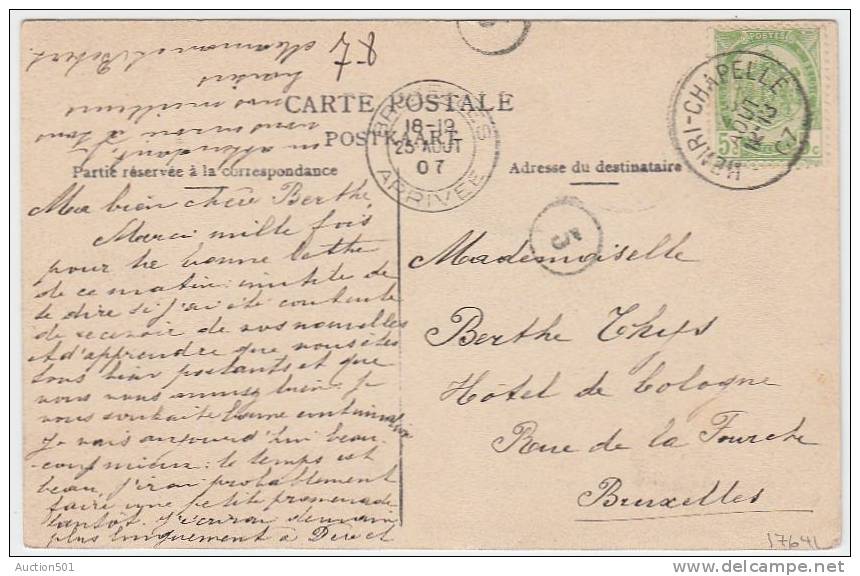 CARTE POSTALE
POSTKAART
Partie réservée à la correspondance
Adresse du destinataire
POSTES
5c 5c
HENRI-CHAPELLE
AOUT
12-13
07
BRUXELLES
18-19
25 AOUT
07
ARRIVEE
8-7
Ma bien chère Berthe,
Merci mille fois
pour ta bonne lettre
de ce matin; inutile de
te dire si j'ai été contente
de recevoir de vos nouvelles
et d'apprendre que vous êtes
tous bien portants et que
vous vous amusez bien. Je
vous souhaite bonne continuation
Je vais aujourd'hui beau-
coup mieux; le temps est
beau, j'irai probablement
faire une petite promenade
tantôt. J'écrirai demain
plus longuement à
en attendant,
vous envoie à tous
nos meilleurs
baisers
Mademoiselle
Berthe Thys
Hôtel de Cologne
Rue de la Fourche
Bruxelles
17641
Auction501
delcampe.net